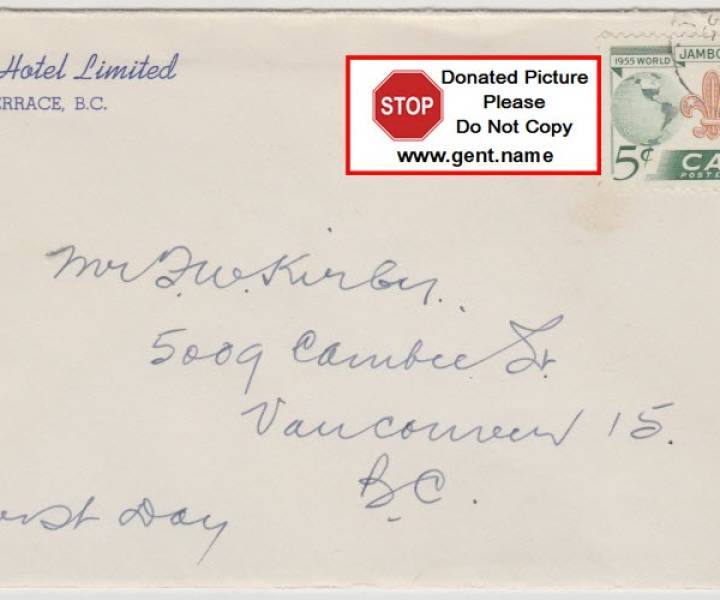 Hotel Limited
ERRACE, B.C.
Donated Picture
Please
Do Not Copy
www.gent.name
STOP
1955 WORLD JAMBO
5¢ CA
POST
Mr F.W. Kirby.
5009 Cambie St.
Vancouver 15.
B.C.
rst Day